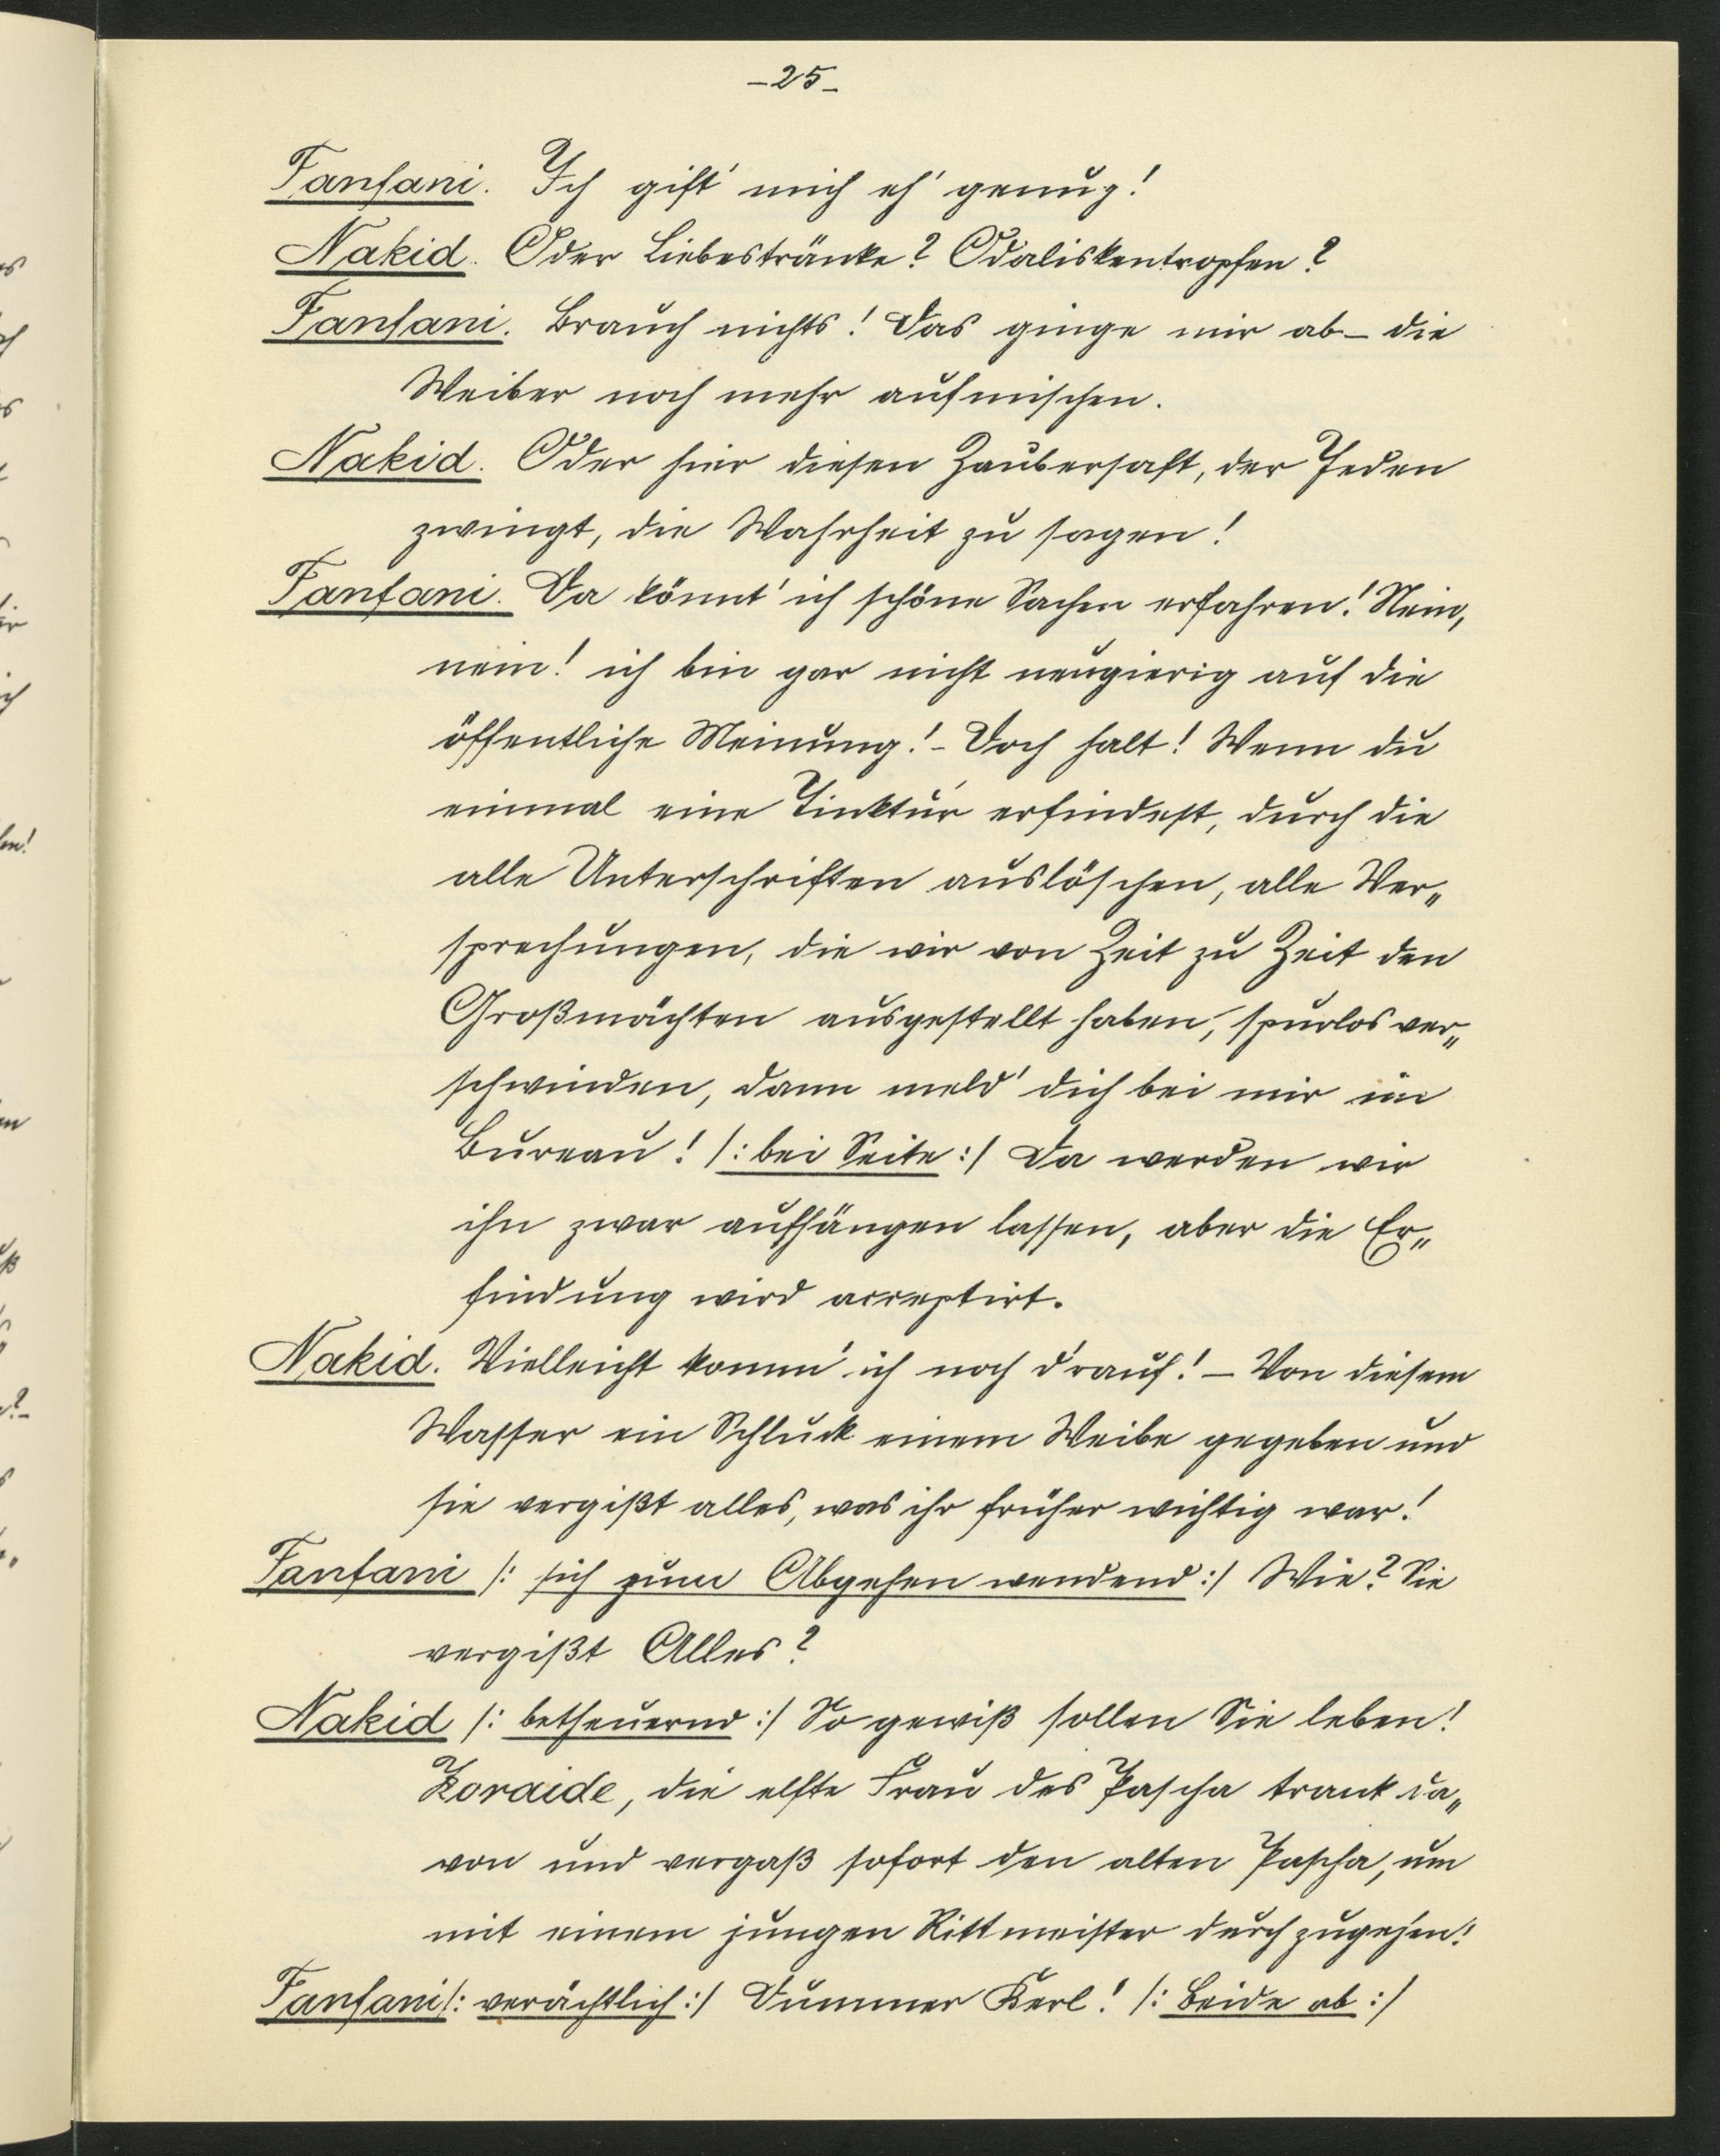 -25-
Fanfani. Ich gift' mich eh' genug!
Nakid. Oder Liebestränke? Odaliskentropfen?
Fanfani. Brauch nichts! Das ginge mir ab - die
Weiber noch mehr aufmischen.
Nakid. Oder hier diesen Zaubersaft, der Jeden
zwingt, die Wahrheit zu sagen!
Fanfani. Da könnt' ich schöne Sachen erfahren! Nein,
nein! ich bin gar nicht neugierig auf die
öffentliche Meinung! - Doch halt! Wenn du
einmal eine Tinktur erfindest, durch die
alle Unterschriften auslöschen, alle Ver„
sprechungen, die wir von Zeit zu Zeit den
Großmächten ausgestellt haben, spurlos ver„
schwinden, dann meld' dich bei mir im
Bureau! /: bei Seite :/ Da werden wir
ihn zwar aufhängen lassen, aber die Er„
findung wird acceptirt.
Nakid. Vielleicht komm' ich noch d'rauf! - Von diesem
Wasser ein Schluck einem Weibe gegeben und
sie vergißt alles, was ihr früher wichtig war!
Fanfani /: sich zum Abgehen wendend :/ Wie? Sie
vergißt Alles?
Nakid /: betheuernd :/ So gewiß sollen Sie leben!
Zoraide, die elfte Frau des Pascha trank da„
von und vergaß sofort den alten Pascha, um
mit einem jungen Rittmeister durchzugehen!
Fanfani /: verächtlich :/ Dummer Kerl! /: Beide ab :/